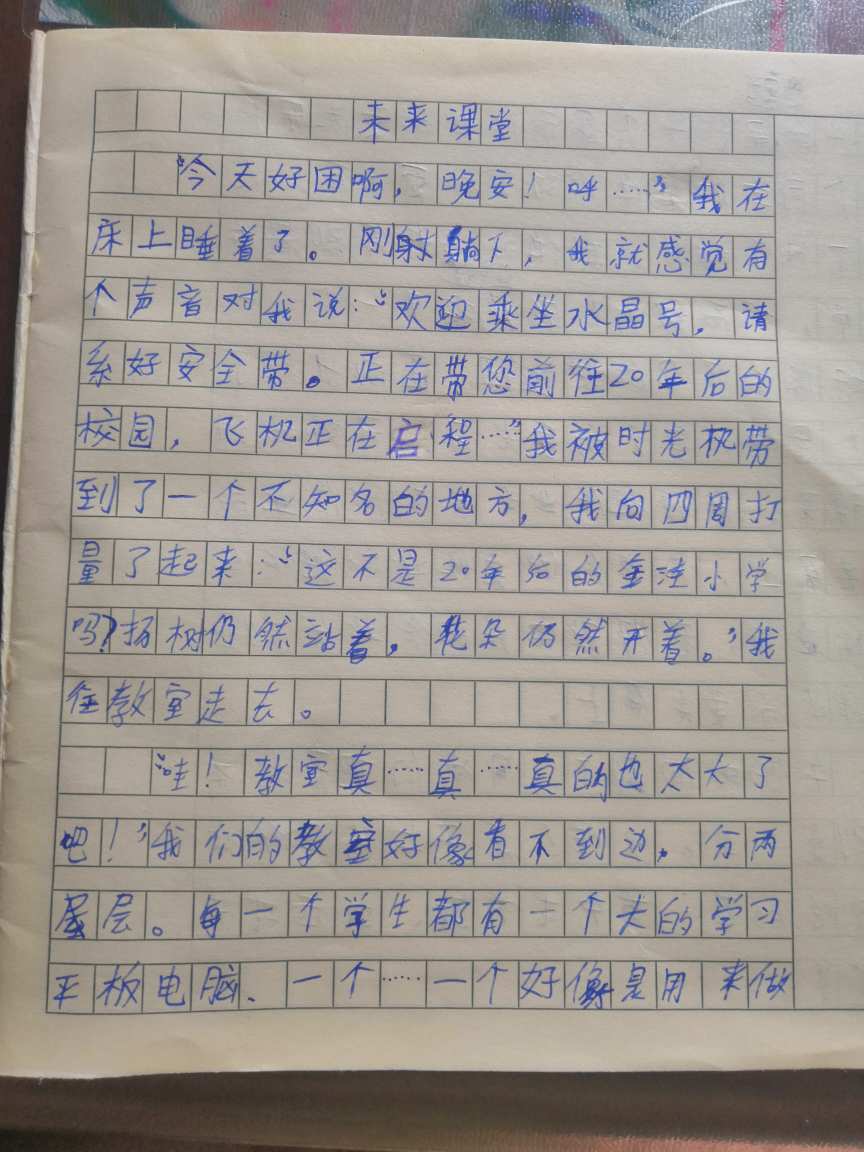 未来课堂
“今天好困啊，晚安！呼……”我在
床上睡着了。刚射躺下，我就感觉有
个声音对我说：“欢迎乘坐水晶号，请
系好安全带。正在带您前往20年后的
校园，飞机正在启程……”我被时光机带
到了一个不知名的地方，我向四周打
量了起来：“这不是20年后的金洼小学
吗？扬树仍然站着，花朵仍然开着。”我
往教室走去。
“哇！教室真……真……真的也太大了
吧！”我们的教室好像看不到边，分两
层。每一个学生都有一个大的学习
平板电脑、一个……一个好像是用来做